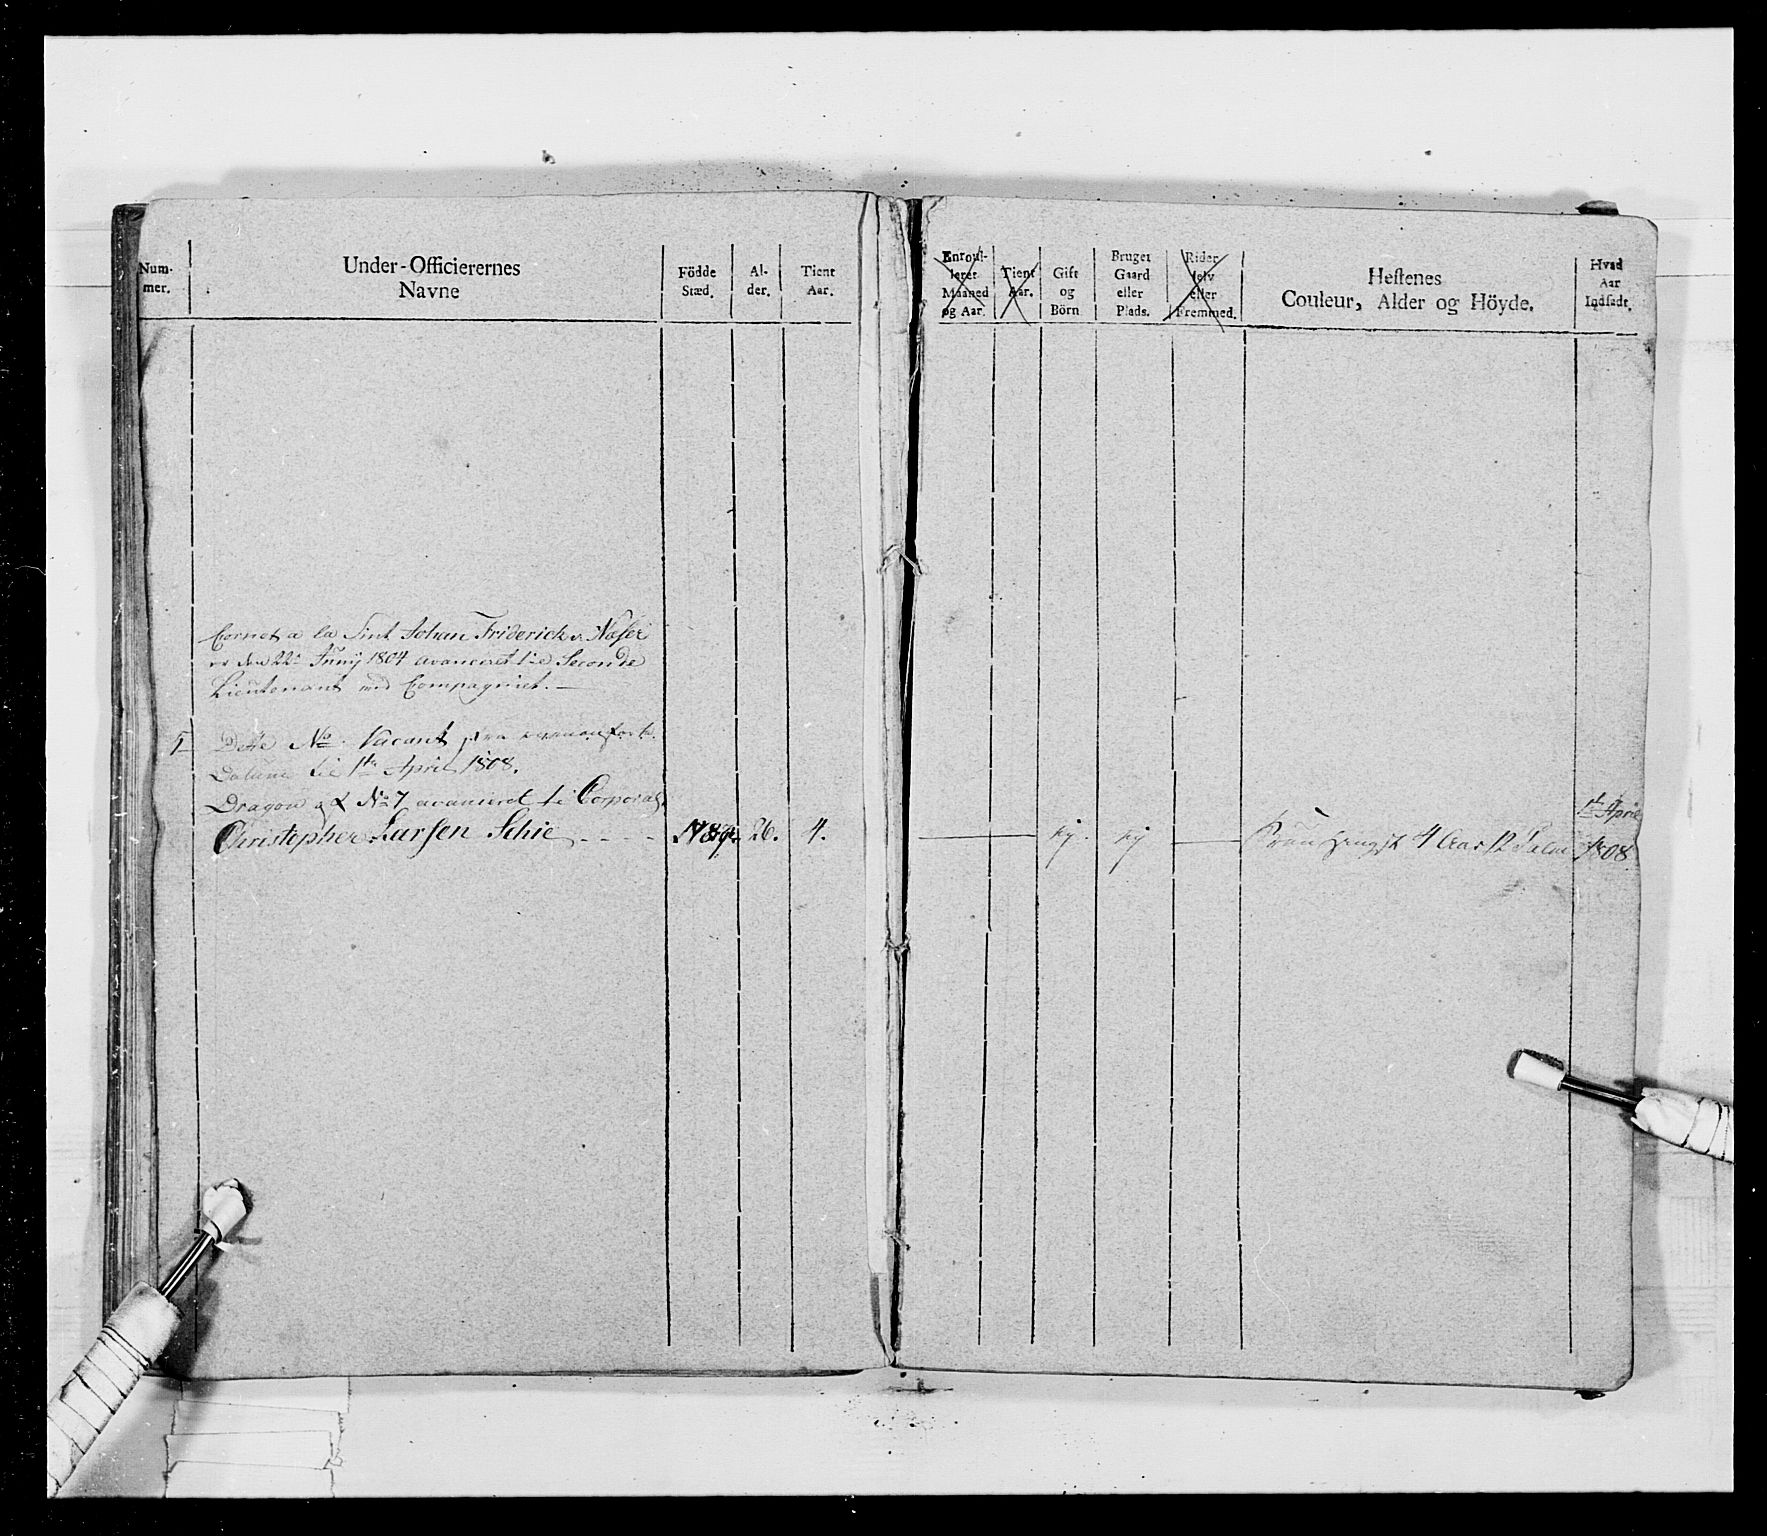 Num-
mer.
Under-Officierernes
Navne
Födde
Stæd.
Al-
der.
Tient
Aar.
Enroul-
leret
Maaned
og Aar.
Tient
Aar.
Gift
og
Börn
Bruger
Gaard
eller
Plads.
Rider
selv
eller
Fremmed.
Hestenes
Couleur, Alder og Höyde.
Hvad
Aar
Indsadt.
Cornet a la Suit Johan Friderick v: Noser
er den 22de Junij 1804 avanceret til Seconde
Lieutenant ved Compagniet. —
Dette No. Vacant fra
Datum til 1te April 1808.
Dragon af No 7 avanceret til Corporal,
Christopher Larsen Schie - - - Norge. 26. 4. — — Hengst 4 Aar 12
1te April
1808